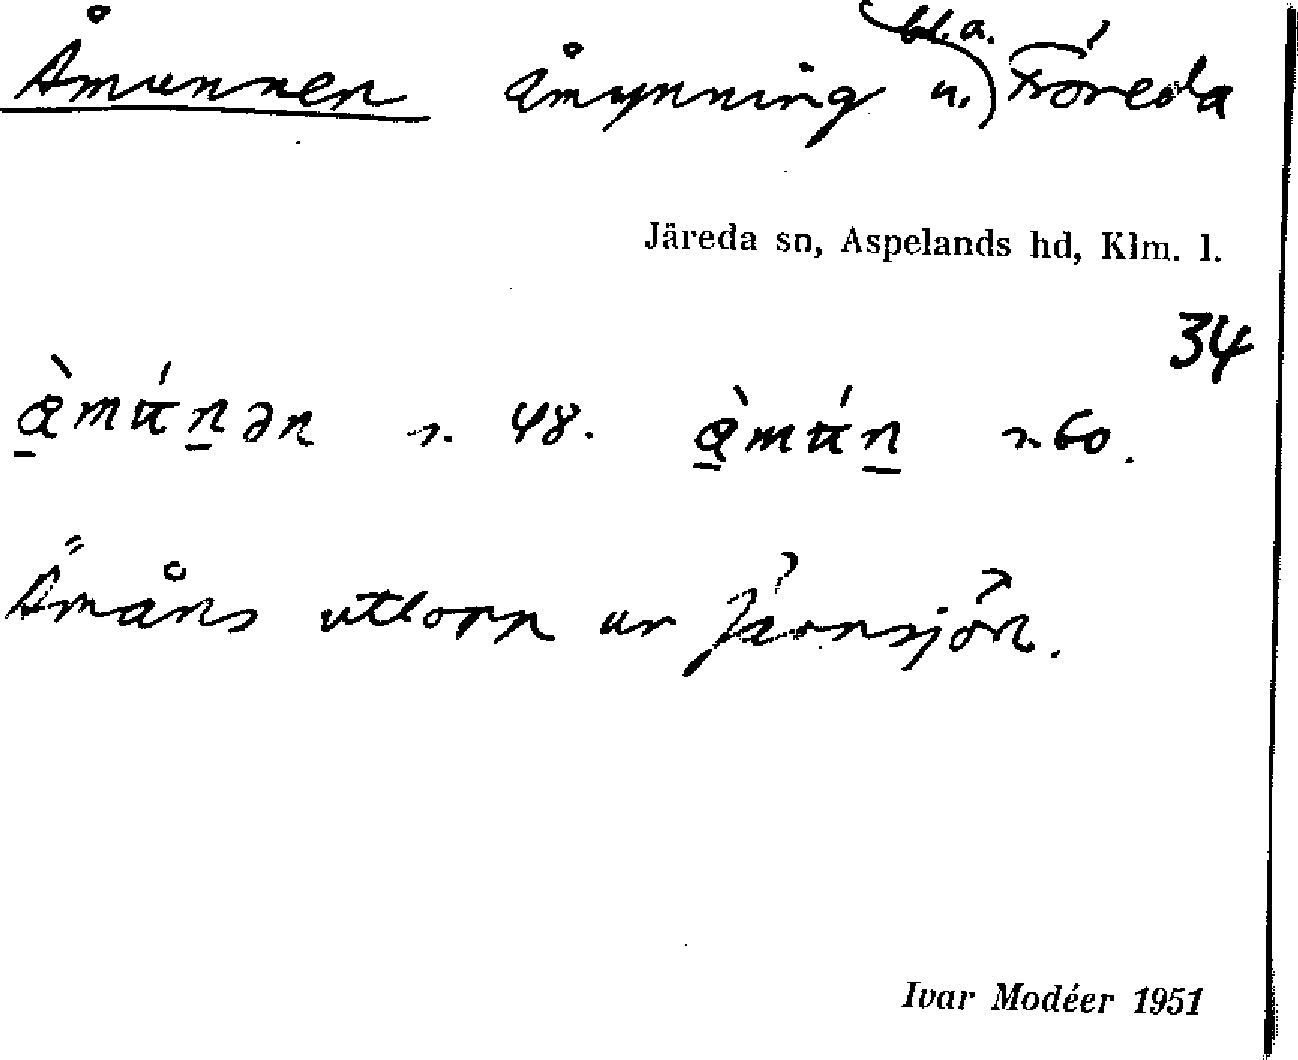 Åmunnen åmynning u. bl.a. Fröreda
Järeda sn, Aspelands hd, Klm. l.
34
48. 60.
Ämåns utlopp ur Järnsjön.
Ivar Modéer 1951